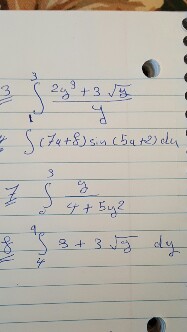 3 ∫₁³ (2y⁹ + 3√y) / y
∫(7u+8) sin(5u+2) du
7 ∫₀³ y / (4 + 5y²)
8 ∫₄⁹ 3 + 3√y dy